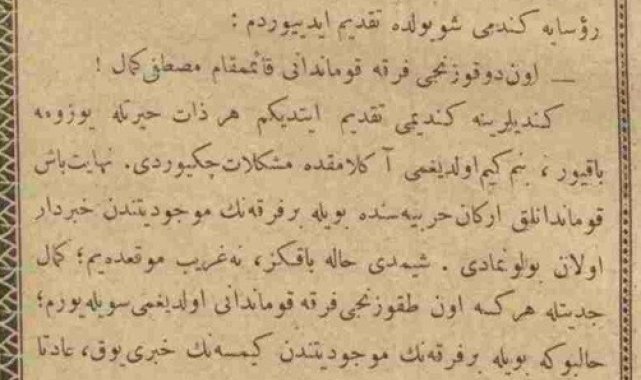 رؤسایه كندمی شو یولده تقدیم ایدییوردم :
— اون دوقوزنجی فرقه قوماندانی قائممقام مصطفی كمال !
كندیلرینه كندیمی تقدیم ایتدیكم هر ذات حیرتله یوزومه
باقیور ، بنم كیم اولدیغمی آ كلامقده مشكلات چكیوردی. نهایت باش
قوماندانلق اركان حربیه سنده بویله بر فرقه نك موجودیتندن خبردار
اولان بولونمادی . شیمدی حاله باقكز، نه غریب موقعده یم؛ كمال
جدیتله هركسه اون طقوزنجی فرقه قوماندانی اولدیغمی سویله یورم؛
حالبوكه بویله بر فرقه نك موجودیتندن كیمسه نك خبری یوق، عادتا